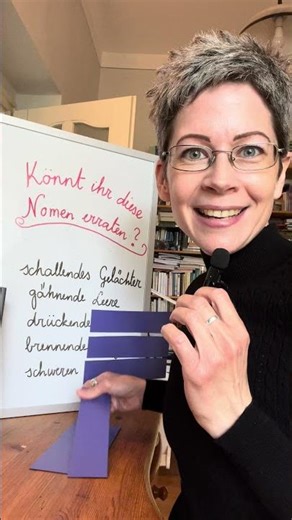 Könnt ihr diese
Nomen erraten?
schallendes Gelächter
gähnende Leere
drückende
brennende
schweren